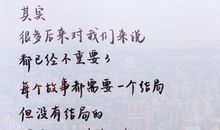 其实
很多后来对我们来说
都已经不重要了
每个故事都需要一个结局
但没有结局的